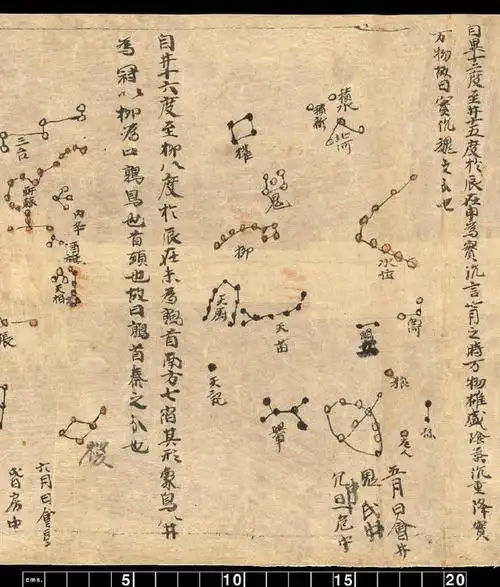 自畢十二度至井十五度於辰在申為實沉言七月之時万物雄盛陰氣沉重降實
万物故曰實沉魏之分也
積水
積薪
北河
水位
鬼
柳
狼
老人
孫
五月日會井
氐中
旦危中
自井十六度至柳八度於辰在未為鶉首南方七宿其形象鳥以井
為冠以柳為口鶉鳥也首頭也故曰鶉首秦之分也
天苗
天記
三台
軒轅
內平
酒旗
天相
張
稷
六月日會
昏房中
cms. 5 10 15 20